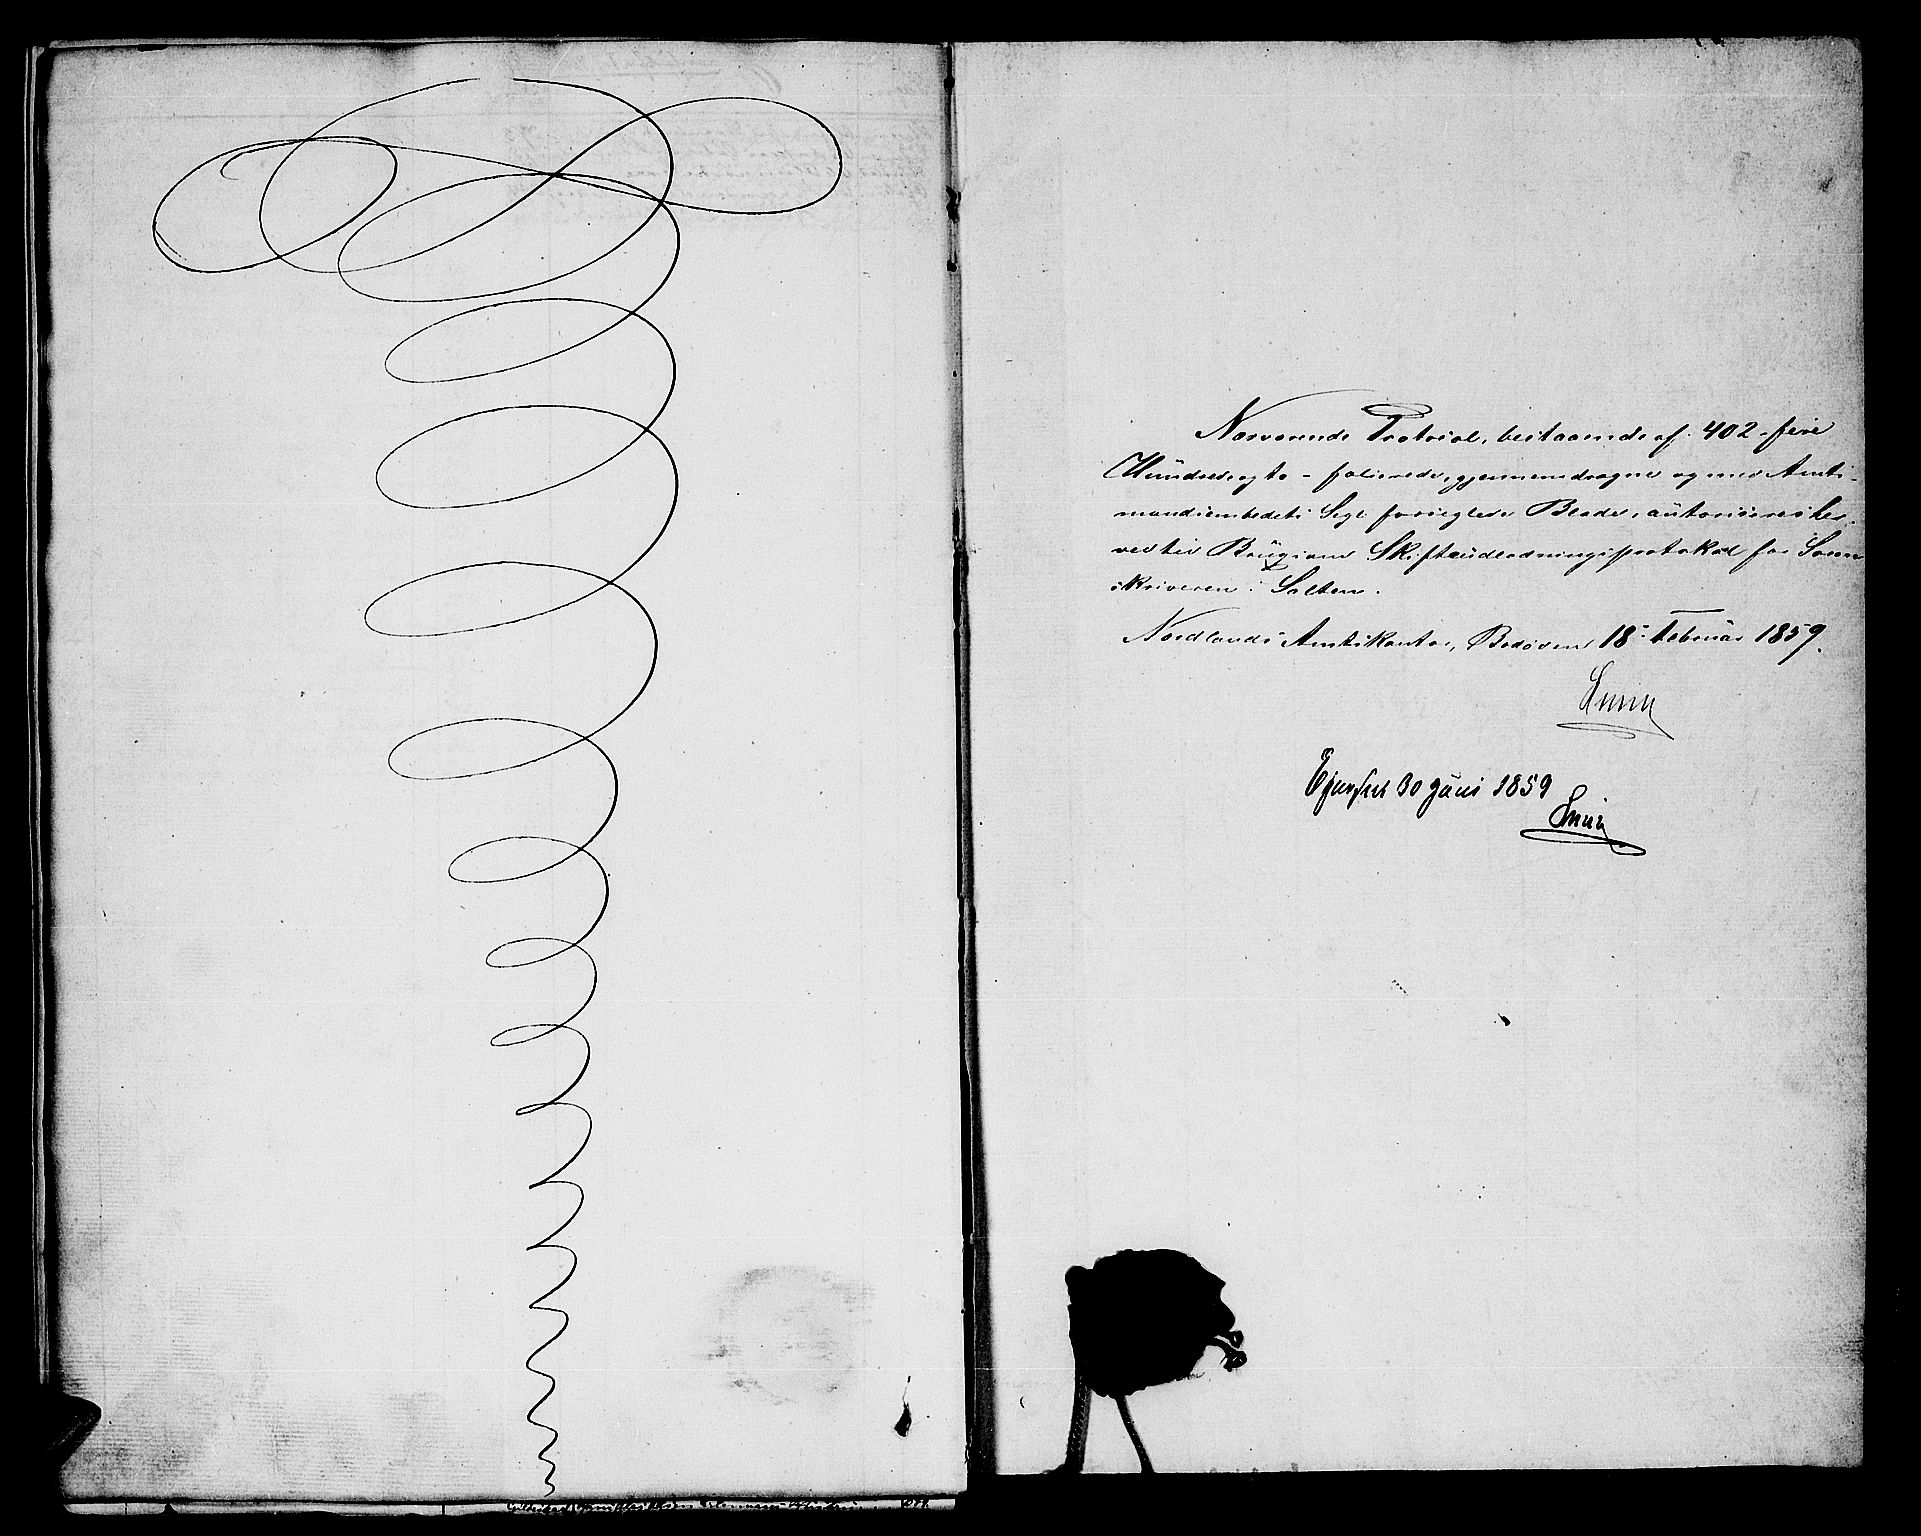 Nærværende Protocol, bestaaende af 402 - fire
Hundrede og to - folierede, gjennemdragne og med Amt-
mandsembedets Segl forseglede Blade, autoriseres her-
ved til Brug som Skifteudlodningsprotokol for Soren-
skriveren i Salten.
Nordlands Amtskontor, Bodøen 18. Februar 1859.
Efterseet 30 Juni 1859